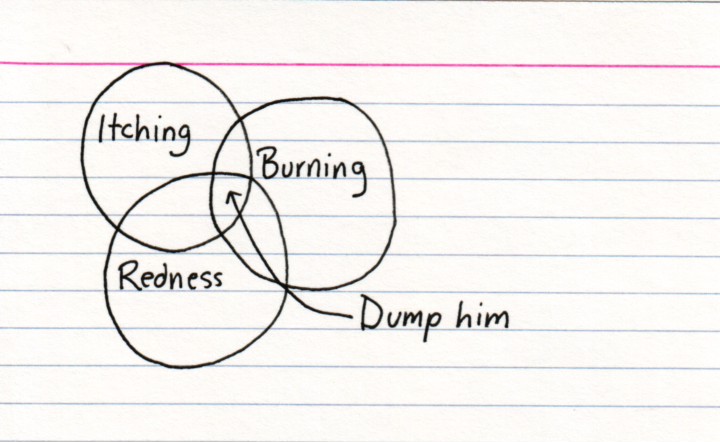 Itching
Burning
Redness
Dump him